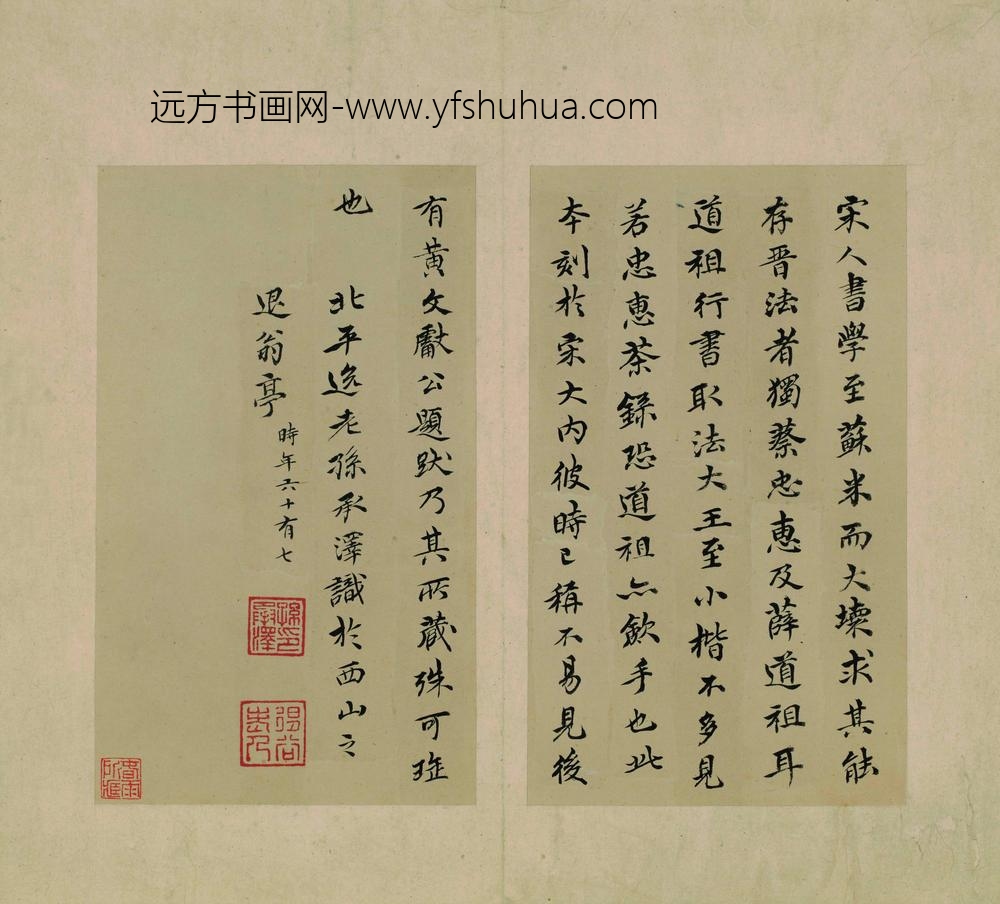 远方书画网-www.yfshuhua.com
宋人書學至蘇米而大壞求其能
存晋法者獨蔡忠惠及薛道祖耳
道祖行書取法大王至小楷不多見
若忠惠茶錄恐道祖亦歛手也此
本刻於宋大內彼時已稱不易見後
有黃文獻公題跋乃其所藏殊可珍
也
北平逸老孫承澤識於西山之
退翁亭
時年六十有七
孫承澤印